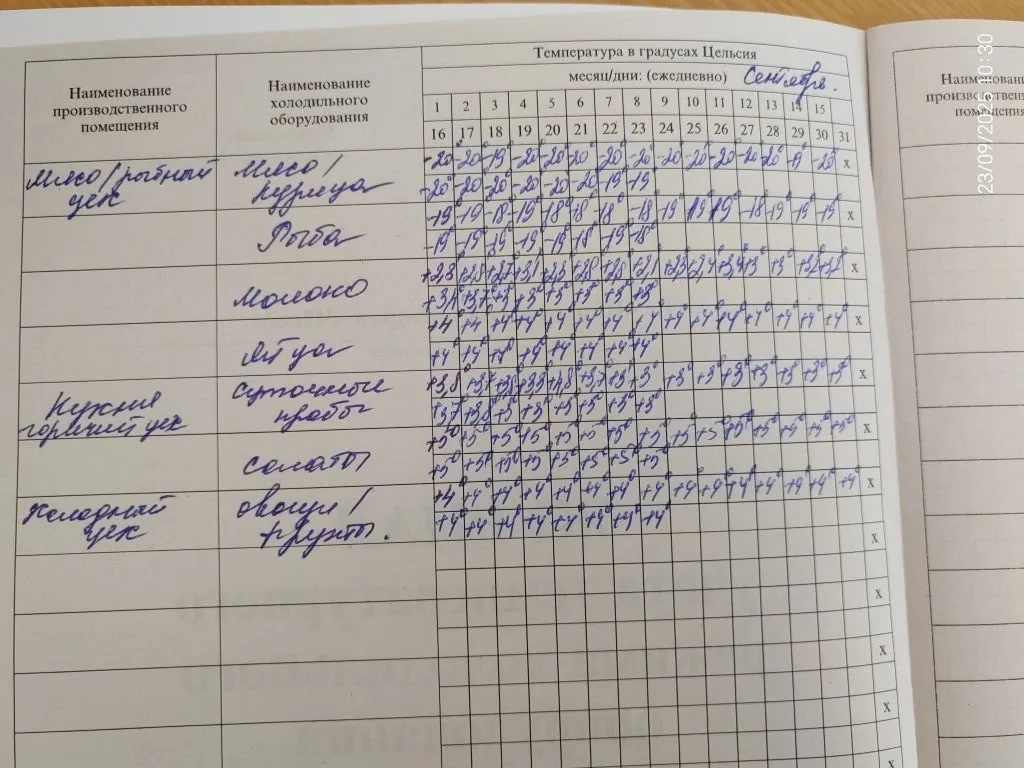 Температура в градусах Цельсия
месяц/дни: (ежедневно) Сентябрь.
Наименование производственного помещения
Наименование холодильного оборудования
1 2 3 4 5 6 7 8 9 10 11 12 13 14 15
16 17 18 19 20 21 22 23 24 25 26 27 28 29 30 31
Мясо/рыбный цех
Мясо/курица
-20° -20 -19° -20 -20° -20° -20° -20° -20 -20 -20 -20 -20° -20° x
-20° -20 -20° -20° -20 -20 -19° -19°
Рыба
-19 -19 -18 -19° -18° -18° -18° -18 -19 19° 19° -18 -19° -19° -19 x
-19° -19° -19° -19 -19 -18° -19° -18°
Молоко
x
+3° +3° +3° +3° +3°
Яйца
+4° +4° +4° +4° +4 +4° +4° +4 +4° +4° +4° +4° +4 +4° +4° x
+4° +4° +4° +4° +4° +4° +4° +4°
Кухня горячий цех
Суточные пробы
+3° +3° +3° +3° +3° +3° +3° +3° x
+3,7 +3,8 +3° +3° +3 +3° +3° +3°
салаты
+5° +5° +5° +5° +5° +5° +5° +5 +5 +5° +5° +5° +5° +5° +5° x
+5° +5° +5° +5 +5° +5° +5° +5°
Холодный цех
овощи/фрукты.
+4° +4° +4° +4° +4 +4° +4° +4° +4° +4° +4° +4° +4° +4° +4 x
+4° +4° +4 +4° +4° +4° +4° +4°
x
x
x
x
x
23/09/2025 10:30